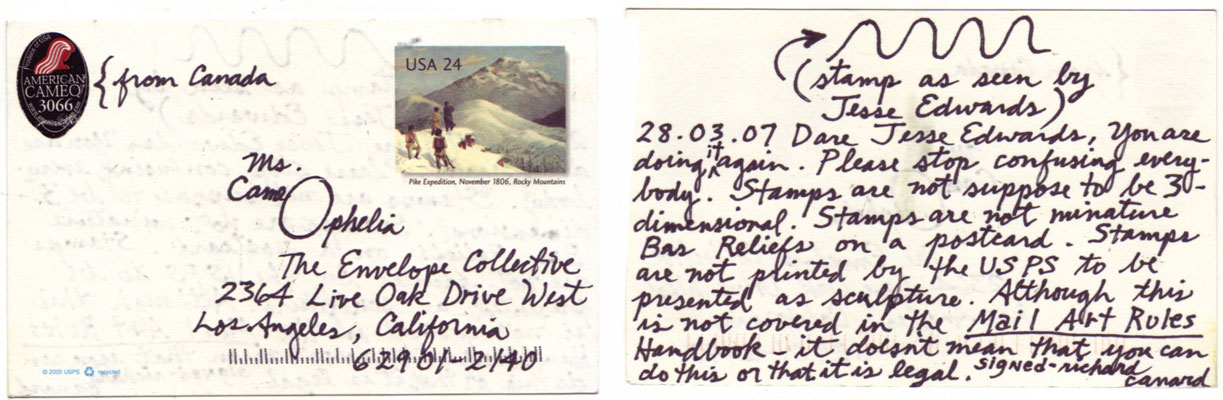 States of USA
AMERICAN
CAMEO
3066
{from Canada
USA 24
Pike Expedition, November 1806, Rocky Mountains
Ms.
Came Ophelia
The Envelope Collective
2364 Live Oak Drive West
Los Angeles, California
62901-2140
© 2005 USPS recycled
(stamp as seen by
Jesse Edwards)
28.03.07 Dare Jesse Edwards, You are
doing it again. Please stop confusing every-
body. Stamps are not suppose to be 3-
dimensional. Stamps are not minature
Bas Reliefs on a postcard. Stamps
are not printed by the USPS to be
presented as sculpture. Although this
is not covered in the Mail Art Rules
Handbook - it doesnt mean that you can
do this or that it is legal. signed-richard
canard